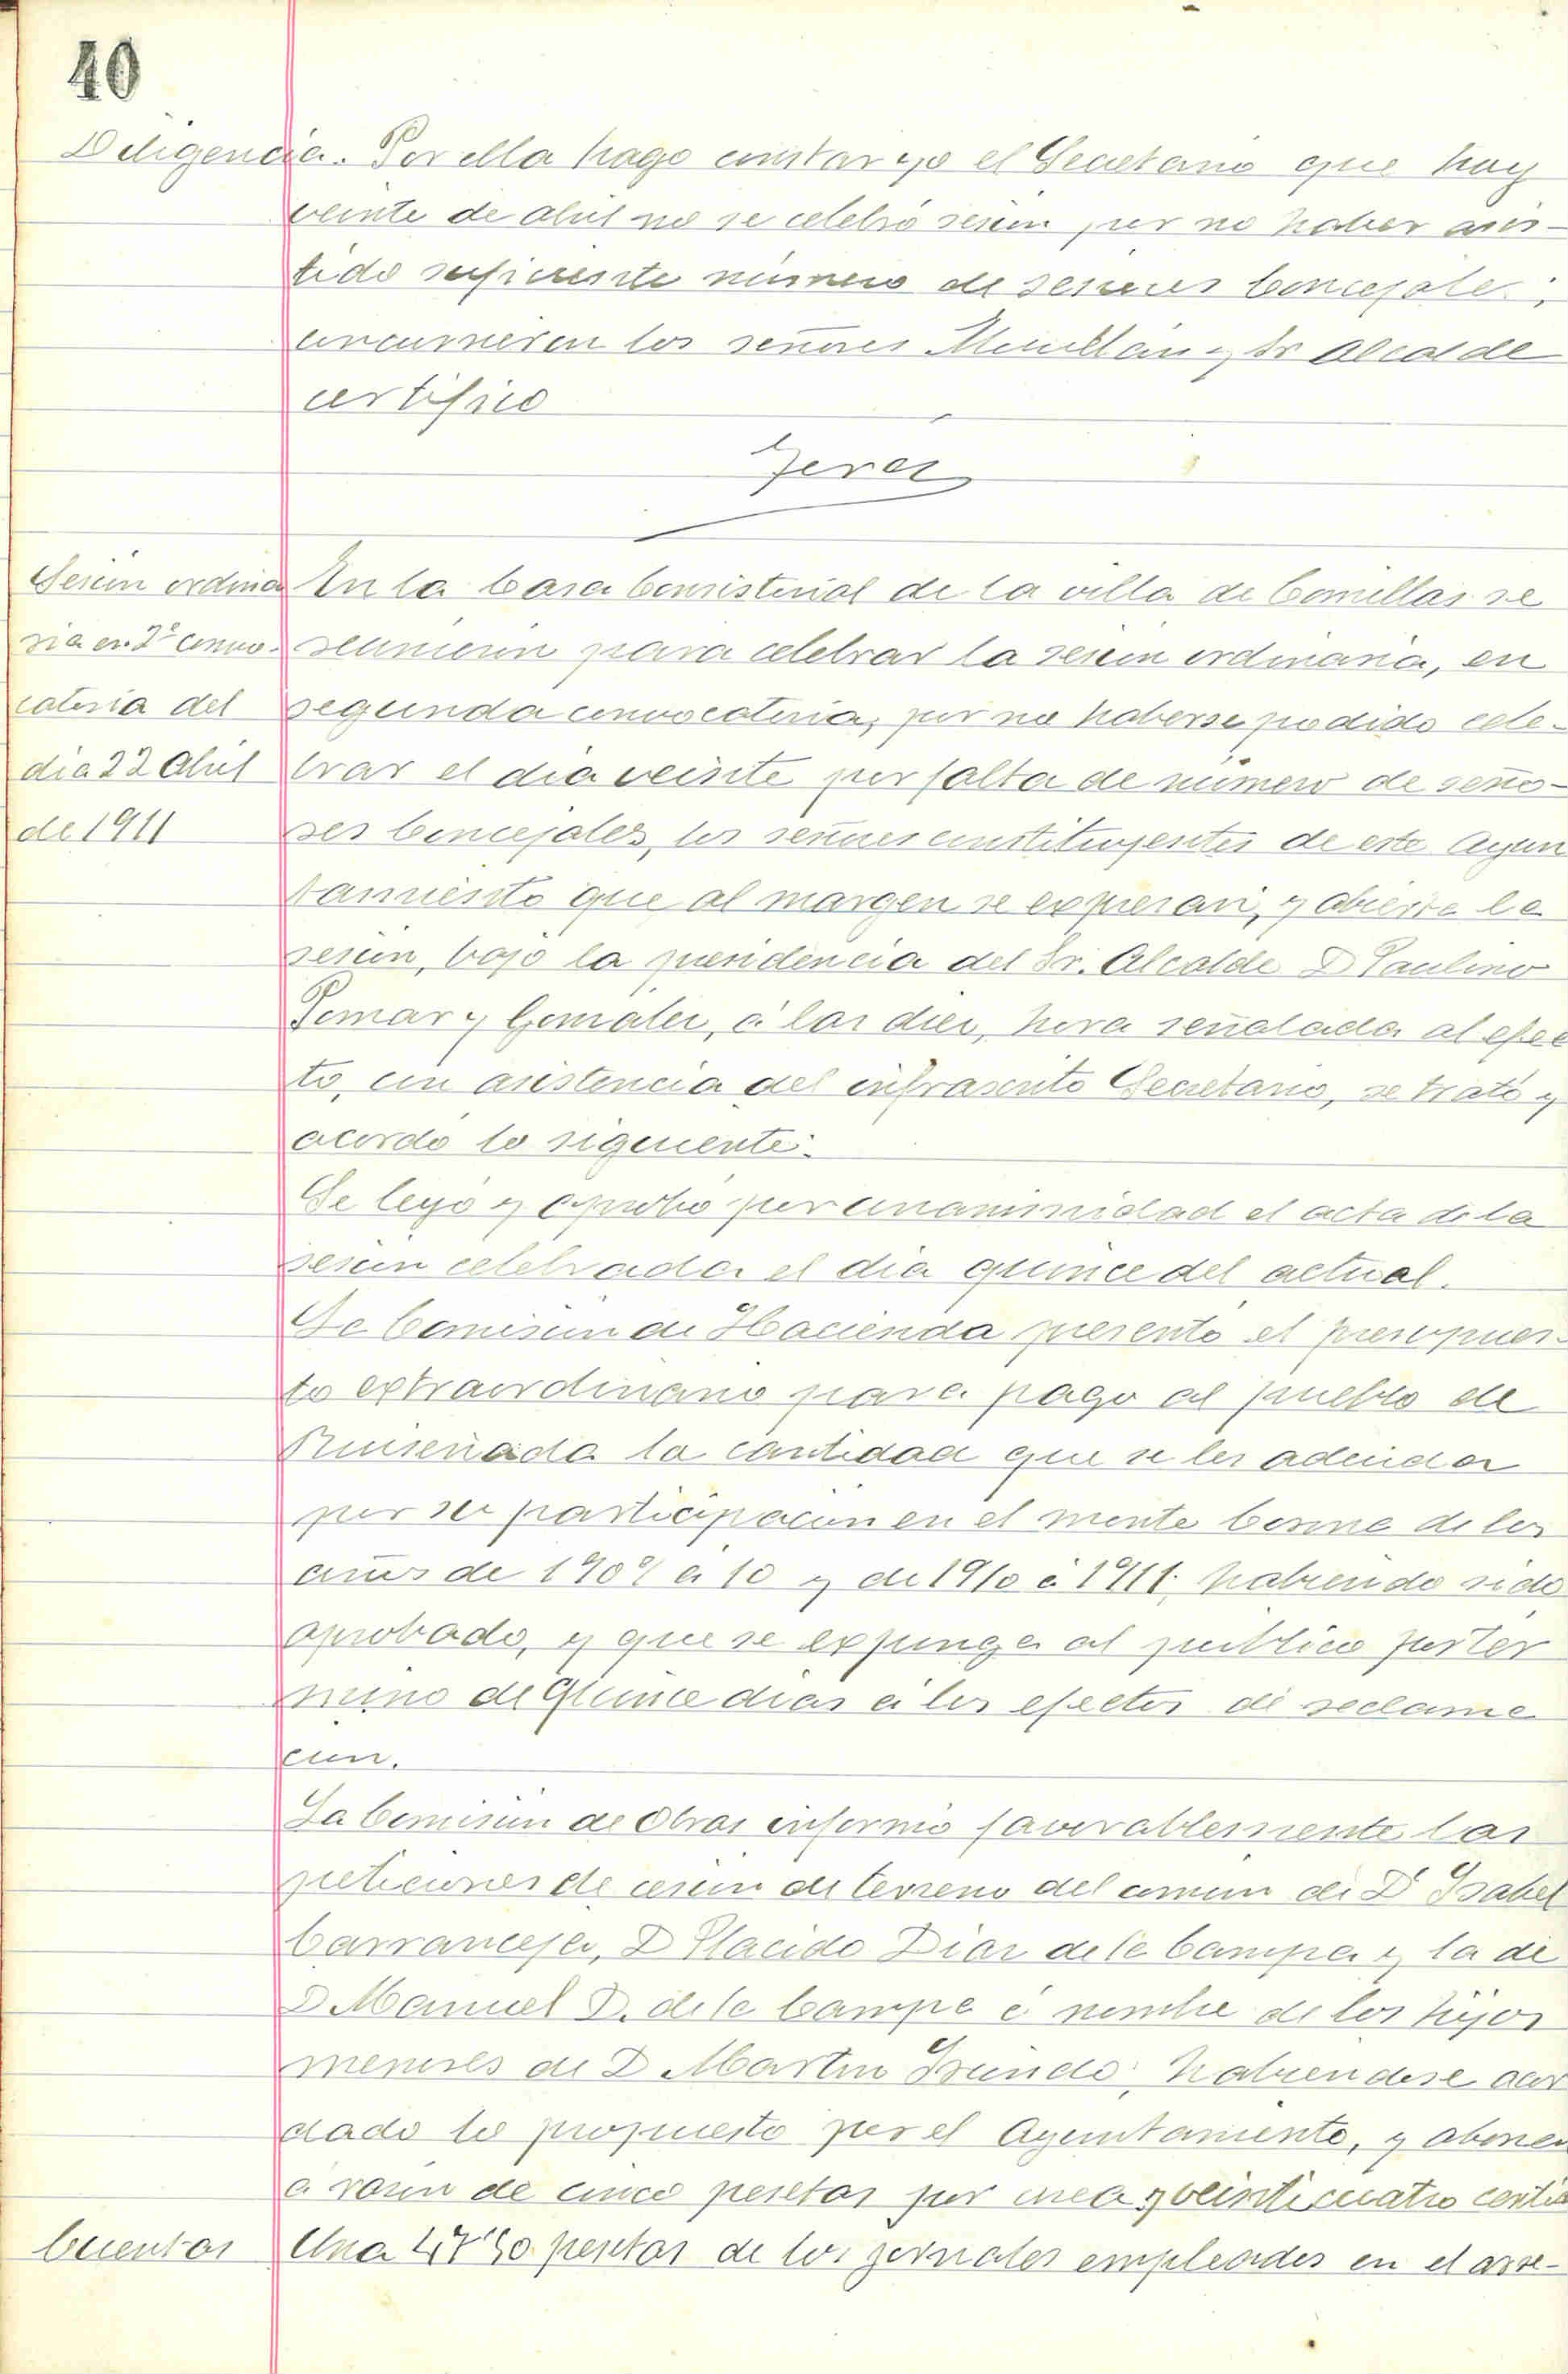 40
Diligencia. Por ella hago constar yo el Secretario que hoy
veinte de abril no se celebró sesion por no haber asis-
tido suficiente número de señores Concejales;
concurrieron los señores y Sr Alcalde
certifico
Jerez
Sesion ordina
ria en 2ª convo-
catoria del
dia 22 Abril
de 1911
En la Casa Consistorial de la villa de Comillas se
reunieron para celebrar la sesion ordinaria, en
segunda convocatoria, por no haberse podido cele-
brar el dia veinte por falta de número de seño-
res Concejales, los señores constituyentes de este Ayun
tamiento que al margen se expresan, y abierta la
sesion, bajo la presidencia del Sr. Alcalde D Paulino
Pomar y Gonzalez, á las diez, hora señalada al efec
to, con asistencia del infrascrito Secretario, se trató y
acordó lo siguiente:
Se leyó y aprobó por unanimidad el acta de la
sesion celebrada el dia quince del actual.
La Comision de Hacienda presentó el presupues-
to extraordinario para pago al pueblo de
Ruiseñada la cantidad que se les adeuda
por su participacion en el monte Corona de los
años de 1909 a 10 y de 1910 á 1911, habiendo sido
aprobado, y que se exponga al publico por ter
mino de Quince dias á los efectos de reclama
cion.
La Comision de Obras informó favorablemente las
peticiones de cesion de terreno del comun de Dª Isabel
Carranceja, D Placido Diaz de la Campa y la de
D Manuel D. de la Campa á nombre de los hijos
menores de D Martin habiendose acor
dado lo propuesto por el Ayuntamiento, y abonen
á razon de cinco pesetas por area y veinticuatro
Cuentas
Una pesetas de los jornales empleados en el arre-